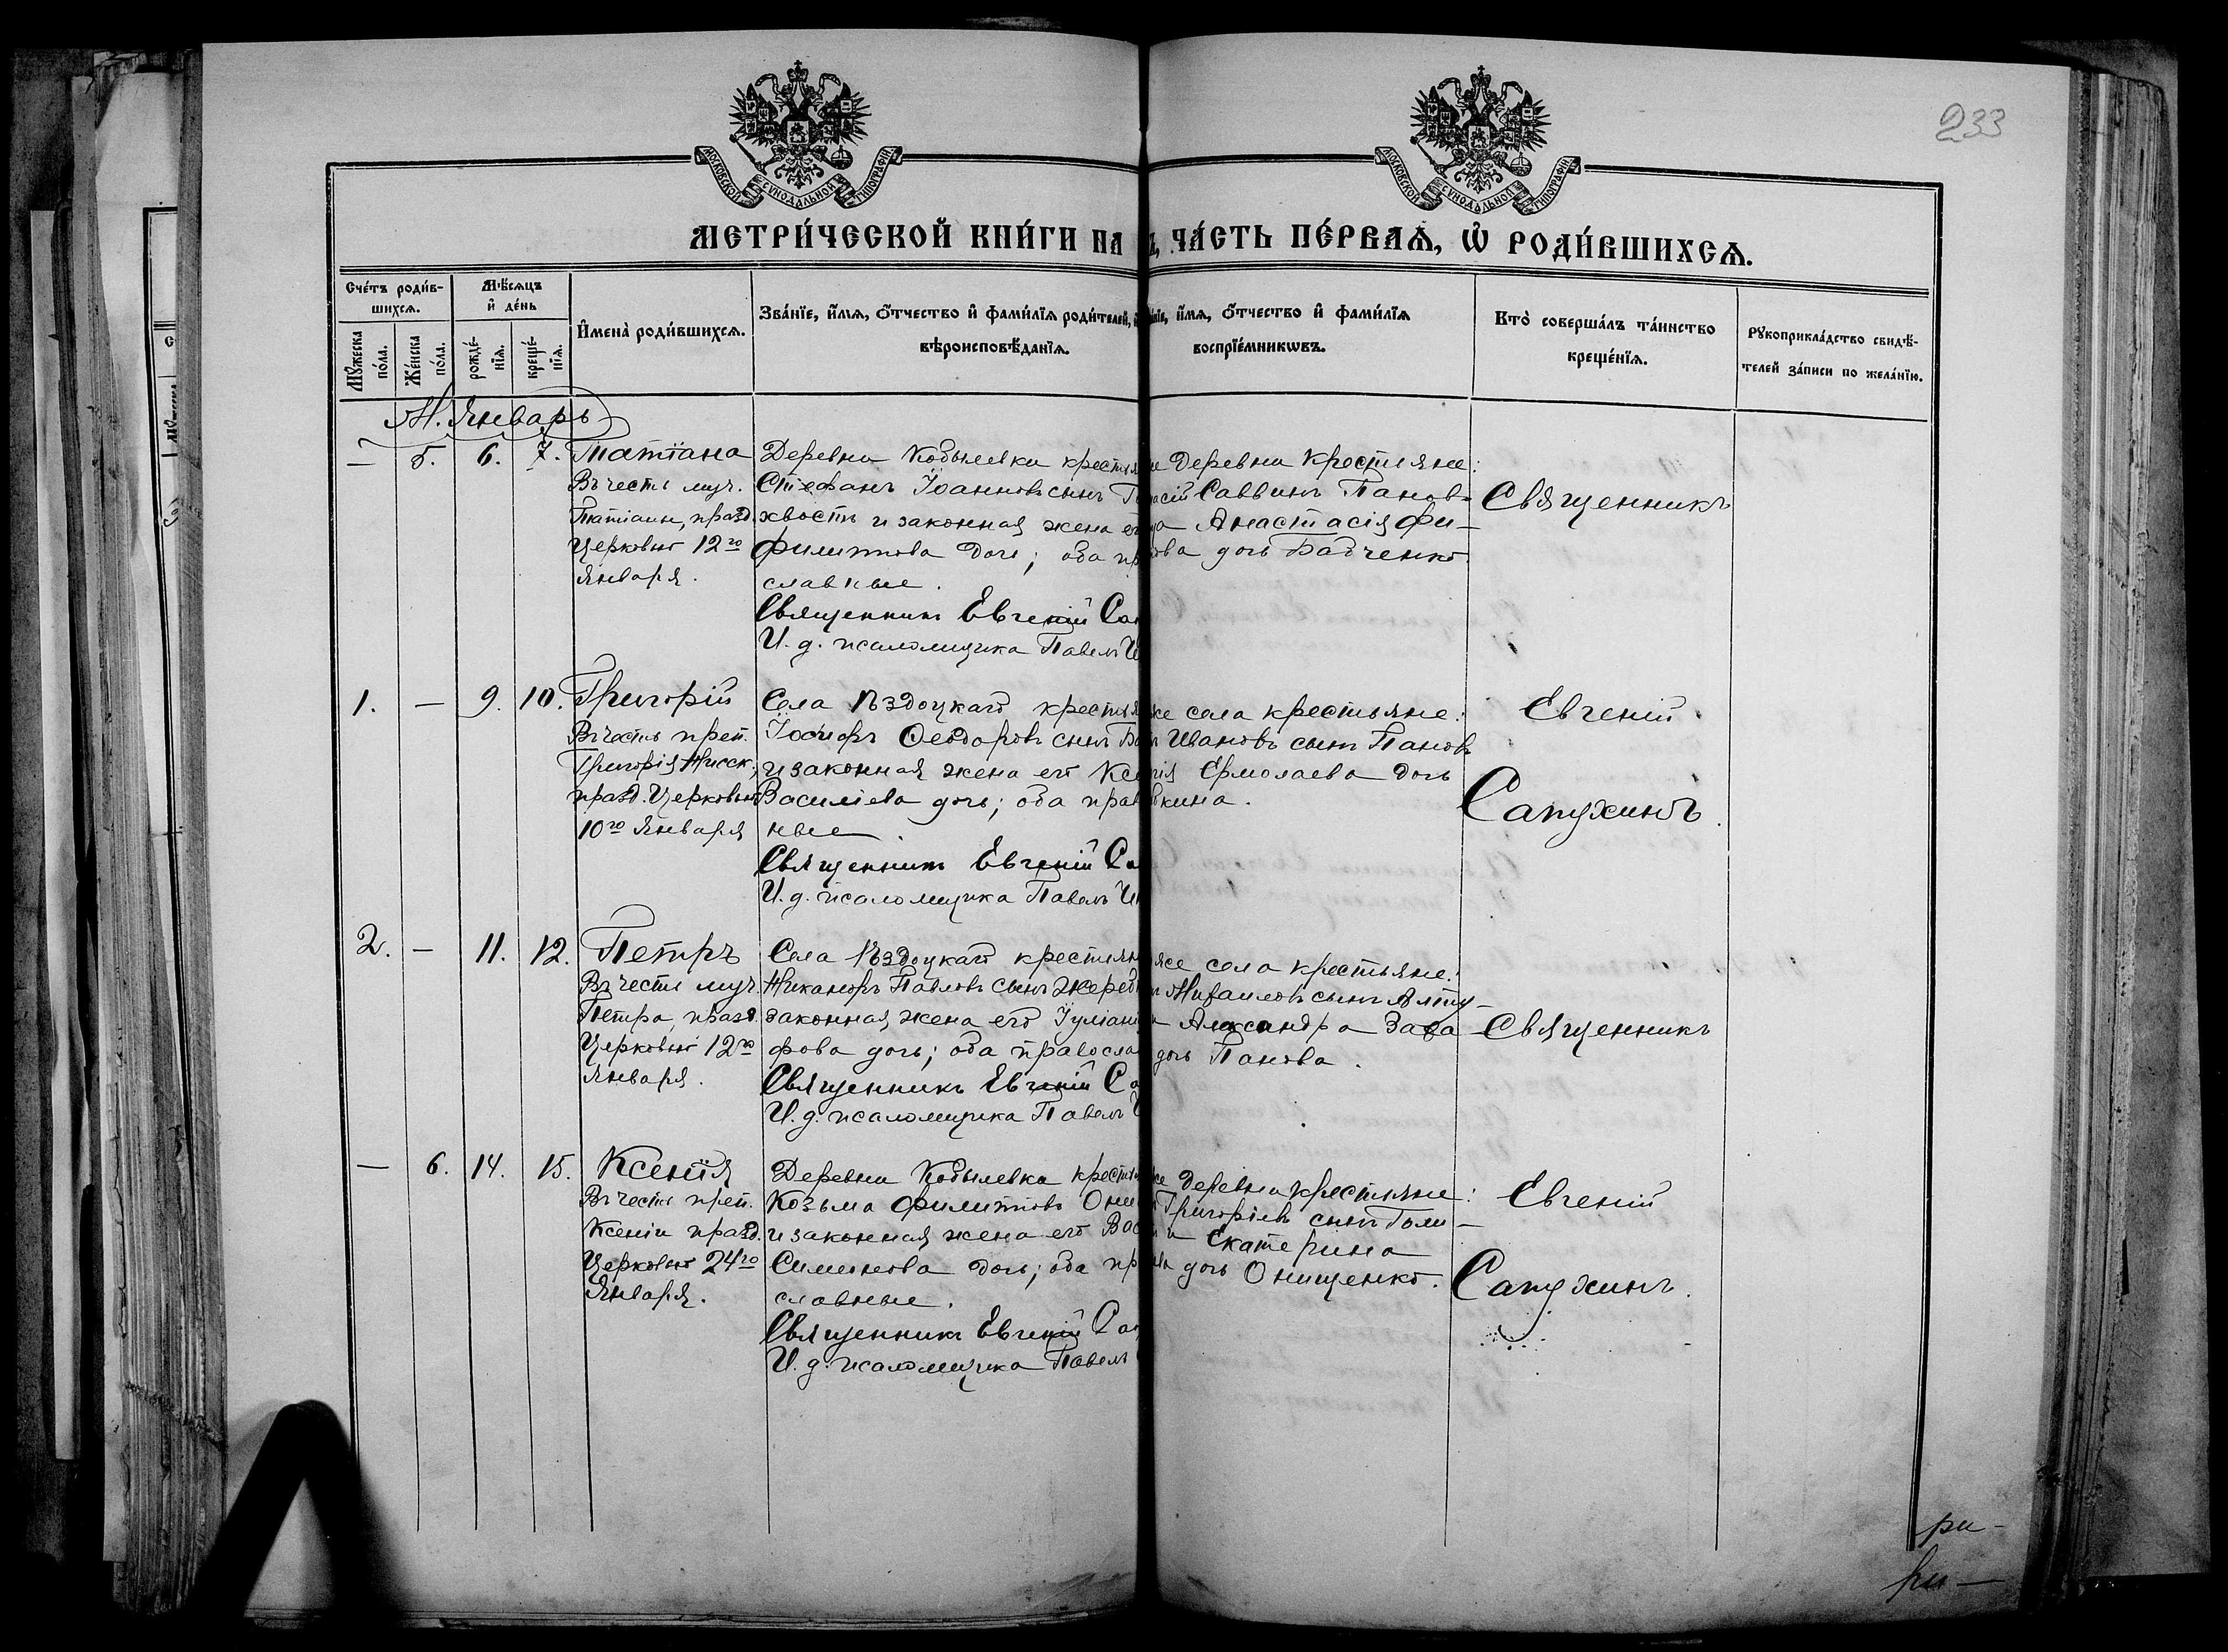 233
МОСКОВСКОЙ СУНОДАЛЬНОЙ ТИПОГРАФІИ
МОСКОВСКОЙ СУНОДАЛЬНОЙ ТИПОГРАФІИ
МЕТРИ́ЧЕСКОЙ КНИ́ГИ НА ЧА́СТЬ ПЕ́РВАѦ, Ѽ РОДИ́ВШИХСѦ.
Сче́тъ роди́в-
шихсѧ.
Мѣ́сѧцъ
и҆ де́нь
Мꙋ́жеска
по́ла.
Же́нска
по́ла.
рожде́-
нїѧ.
креще́-
нїѧ.
И҆мена̀ роди́вшихсѧ.
Зва́нїе, и҆́мѧ, ѻ҆́тчество и҆ фами́лїѧ роди́телей,
вѣроисповѣ́данїѧ.
и҆́мѧ, ѻ҆́тчество и҆ фами́лїѧ
воспрїе́мникѡвъ.
Кто̀ соверша́лъ та́инство
креще́нїѧ.
Рꙋкоприкла́дство свидѣ́-
телей за́писи по жела́нїю.
М. Январь
— 5. 6. 7. Татіана
Въ честь муч.
Татіаны, празд.
Церковью 12го
Января.
Деревни Кобылевки крестья
Стефанъ Іоанновъ сынъ
хвостъ и законная жена его
Филиппова дочь; оба пра
славные.
Священникъ Евгеній Са
И. д. псаломщика Павелъ И
же деревни крестьяне:
Саввинъ Панов-
Анастасія Фи-
пова дочь Бабченко.
Священникъ
1. — 9. 10. Григорій
Въ честь преп.
Григорія Нисск.,
празд. Церковью
10го Января
Села Ѣздоцкаго крестья
Іосифъ Ѳеодоровъ сынъ
и законная жена его Ксе
Васильева дочь; оба прав
ные
Священникъ Евгеній Са
И. д. псаломщика Павелъ И
же села крестьяне:
Ивановъ сынъ Панов
рія Ермолаева дочь
кина.
Евгеній
Сапухинъ.
2. — 11. 12. Петръ
Въ честь муч.
Петра, празд.
Церковью 12го
Января.
Села Ѣздоцкаго крестьян
Никаноръ Павловъ сынъ Жереб
законная жена его Іуліан
фова дочь; оба правосла
Священникъ Евгеній Са
И. д. псаломщика Павелъ
же села крестьяне:
Михаиловъ сынъ Алту-
Александра Заха
дочь Панова.
Священникъ
— 6. 14. 15. Ксенія
Въ честь преп.
Ксеніи празд.
Церковью 24го
Января.
Деревни Кобылевка крестья
Козьма Филипповъ Они
и законная жена его Вас
Симеонова дочь; оба пра
славные.
Священникъ Евгеній Сап
И. д. псаломщика Павелъ
же деревни крестьяне:
Григорьевъ сынъ Голи-
Екатерина
дочь Онищенко.
Евгеній
Сапухинъ.
ри-
ри-